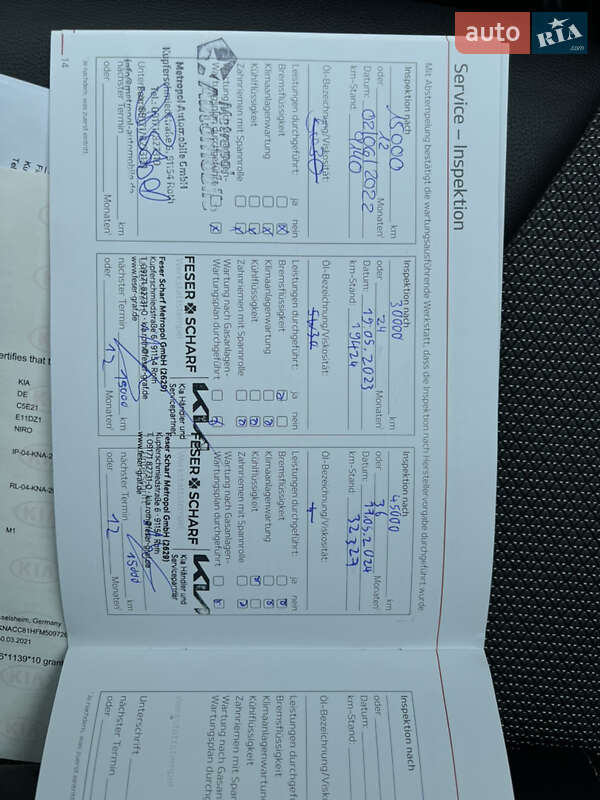 auto RIA.com
Service – Inspektion
Mit Abstempelung bestätigt die wartungsausführende Werkstatt, dass die Inspektion nach Herstellervorgabe durchgeführt wurde
Inspektion nach
15000 km
oder 12 Monaten¹
Datum: 02/06/2022
km-Stand:
Öl-Bezeichnung/Viskosität:
Leistungen durchgeführt: ja nein
Bremsflüssigkeit
Klimaanlagenwartung
Kühlflüssigkeit
Zahnriemen mit Spannrolle
Wartung nach Gasanlagen-
Wartungsplan durchgeführt
Metropol Automobile GmbH
Kupferschmiedstraße 6, 91154 Roth
Unterschrift
nächster Termin km
oder Monaten¹
¹Je nachdem, was zuerst eintritt
14
Inspektion nach
30000 km
oder 24 Monaten¹
Datum: 19.05.2023
km-Stand: 19424
Öl-Bezeichnung/Viskosität:
Leistungen durchgeführt: ja nein
Bremsflüssigkeit
Klimaanlagenwartung
Kühlflüssigkeit
Zahnriemen mit Spannrolle
Wartung nach Gasanlagen-
Wartungsplan durchgeführt
FESER SCHARF
KIA
Kia Händler und
Servicepartner
Feser Scharf Metropol GmbH (2629)
Kupferschmiedstraße 6, 91154 Roth
www.feser-graf.de
nächster Termin 15000 km
oder 12 Monaten¹
Inspektion nach
45000 km
oder Monaten¹
Datum: 17.05.2024
km-Stand: 32327
Öl-Bezeichnung/Viskosität:
Leistungen durchgeführt: ja nein
Bremsflüssigkeit
Klimaanlagenwartung
Kühlflüssigkeit
Zahnriemen mit Spannrolle
Wartung nach Gasanlagen-
Wartungsplan durchgeführt
FESER SCHARF
KIA
Kia Händler und
Servicepartner
Feser Scharf Metropol GmbH (2629)
Kupferschmiedstraße 6 · 91154 Roth
www.feser-graf.de
nächster Termin 15000 km
oder 12 Monaten¹
Inspektion nach
oder
Datum:
km-Stand:
Öl-Bezeichnung/Viskosit
Leistungen durchgeführt
Bremsflüssigkeit
Klimaanlagenwartung
Kühlflüssigkeit
Zahnriemen mit Spannro
Wartung nach Gasanlagen
Wartungsplan durchg
Unterschrift
nächster Termin
oder
¹Je nachdem, was zuerst eintritt
ertifies that t
KIA
DE
C5E21
E11DZ1
NIRO
IP-04-KNA-2
RL-04-KNA-2
M1
sselsheim, Germany
KNACC81HFM509726
0.03.2021
6*1139*10 grant